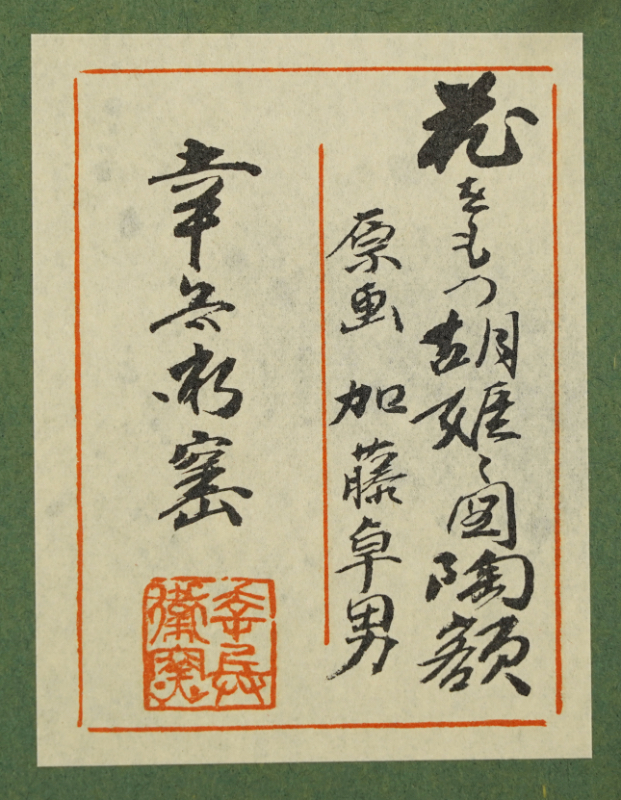 花をもつ胡姫之図陶額
原画 加藤卓男
幸兵衛窯
幸兵衛窯